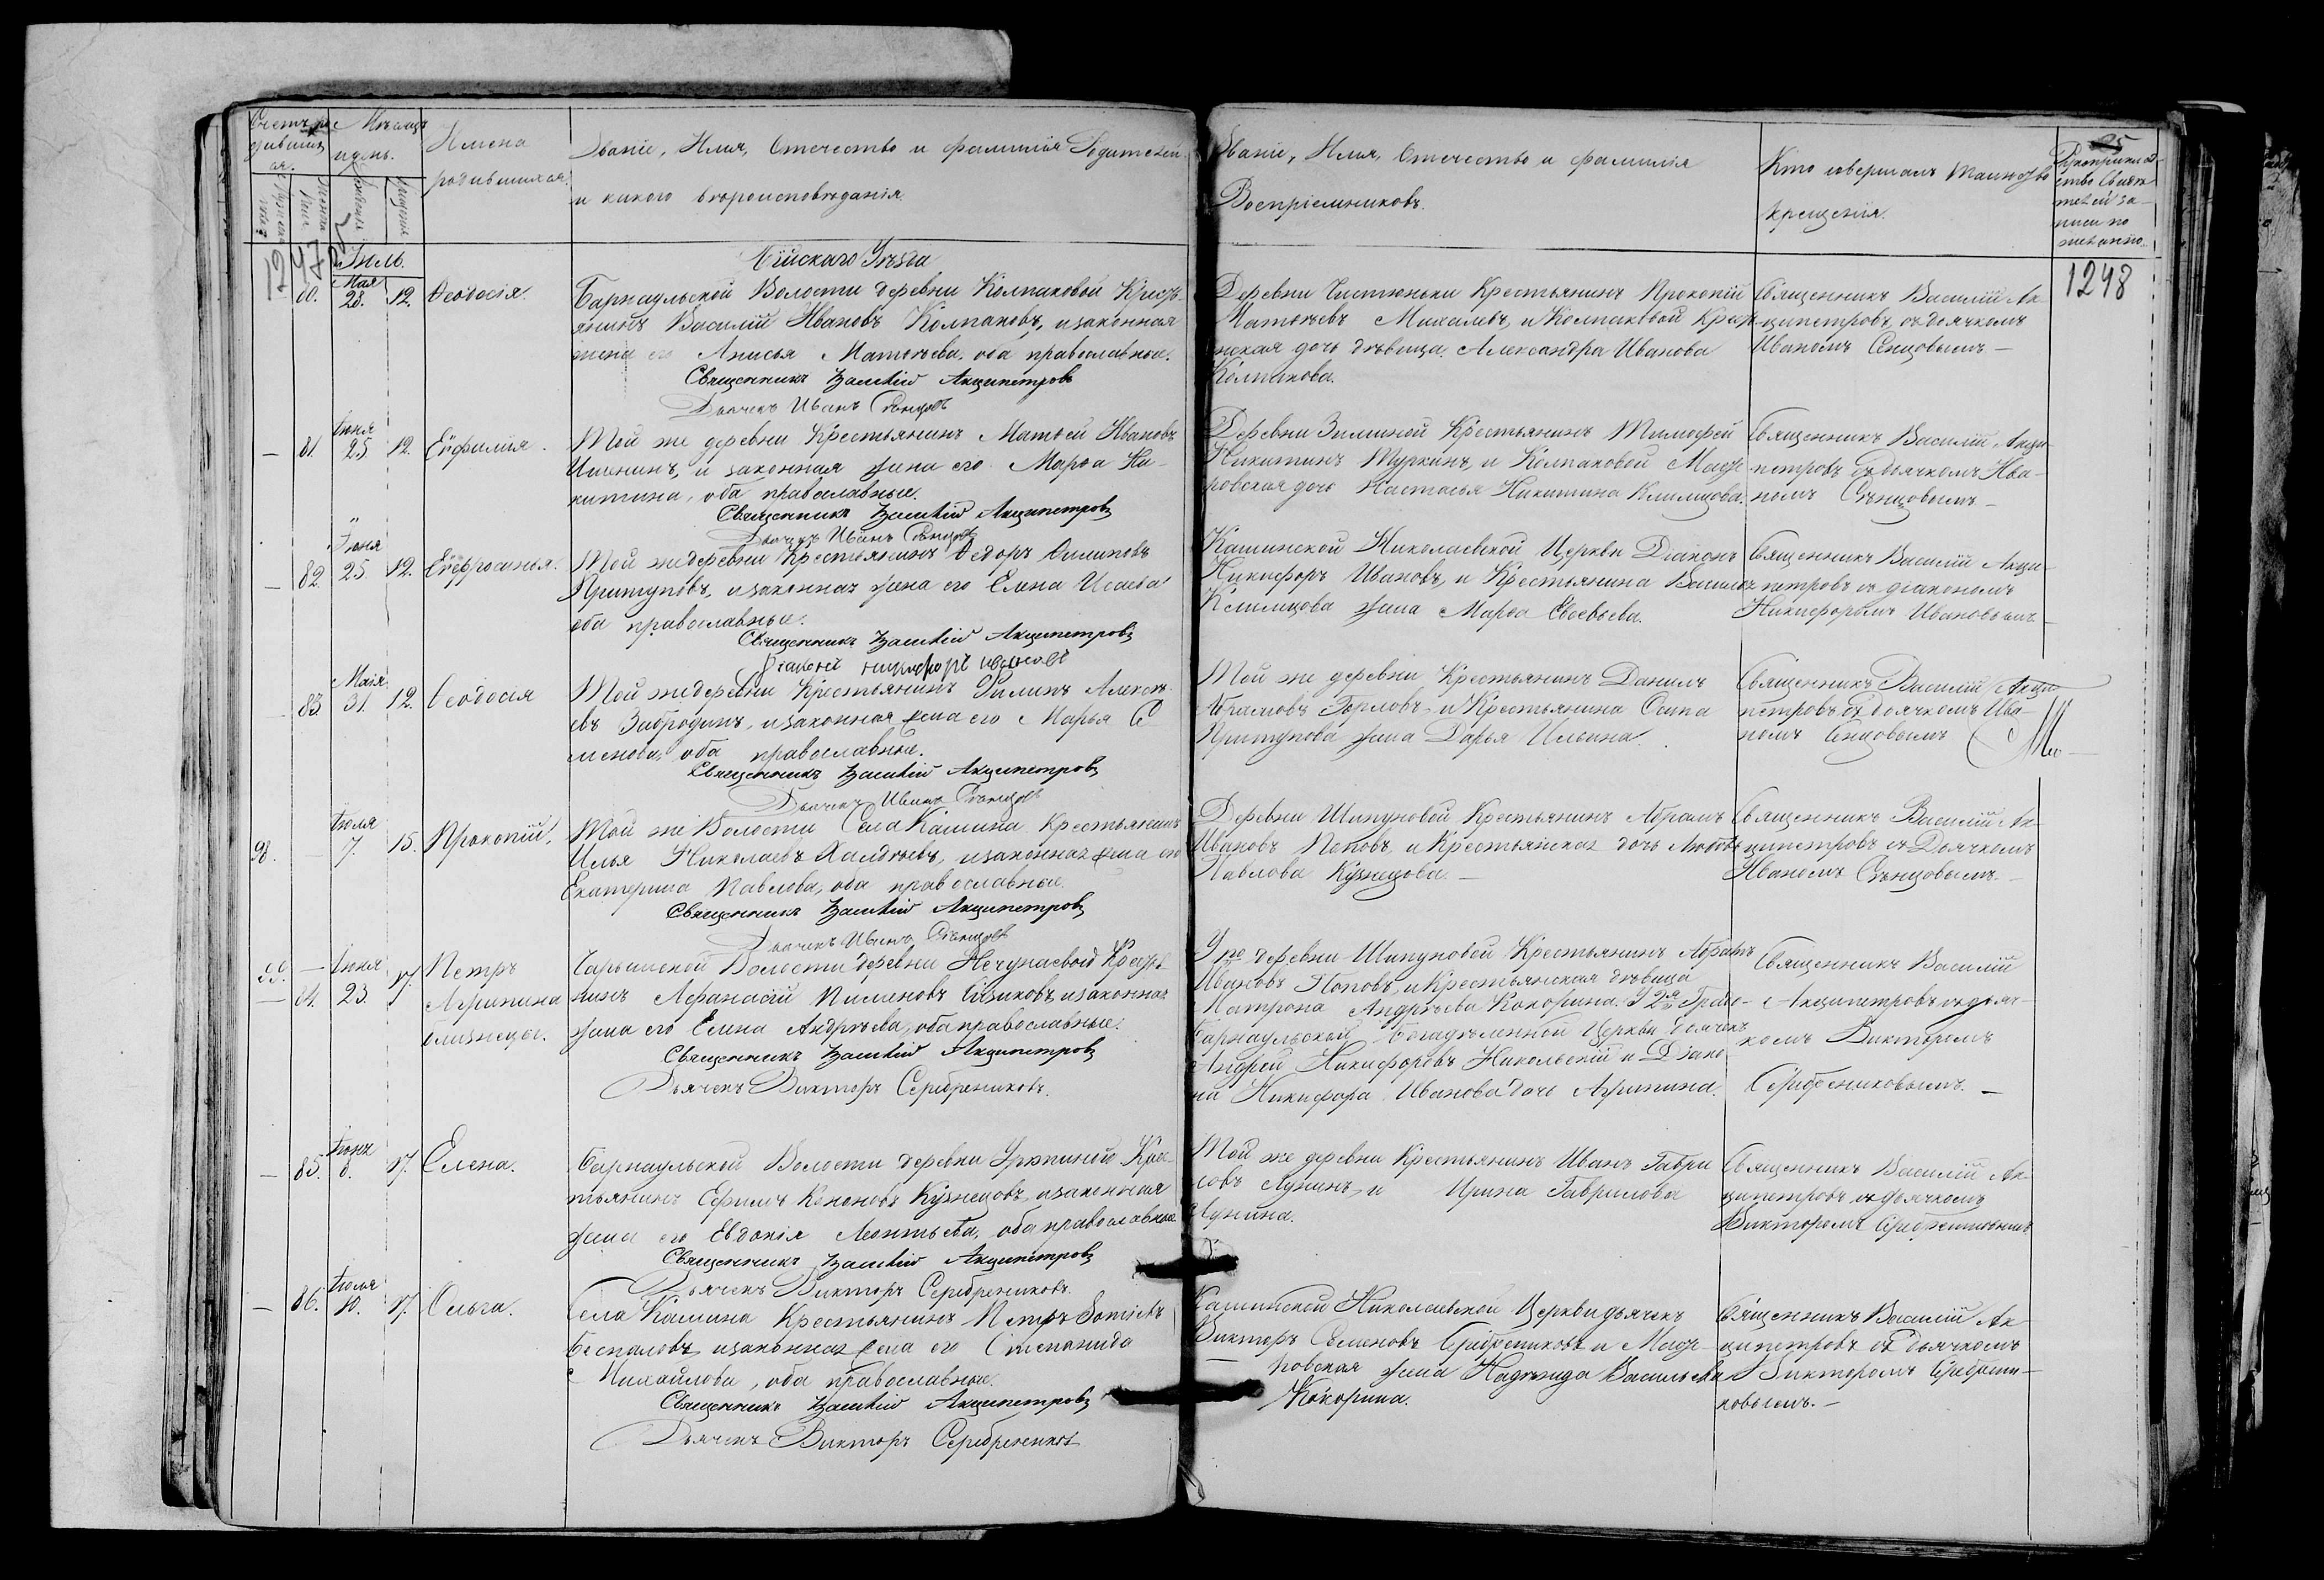 Счетъ ро-
дивших
ся.
Мѣсяцъ
и день.
Имена
родившихся.
Званіе, Имя, Отчество и фамилія Родителей
и какого вѣроисповѣданія.
Званіе, Имя, Отчество и фамилія
Воспріемниковъ.
Кто совершалъ таинство
крещенія.
25
Рукоприклад-
ство свидѣ
телей за-
писи по
желанію.
Мужеска
Женска
Рожденія
Крещенія
1247
1248
Іюль.
Бійскаго Уѣзда
Мая
80. 28. 12. Ѳеодосія.
Барнаульской Волости деревни Колпаковой Кресть
янинъ Василій Ивановъ Колпаковъ, изаконная
жена его Анисья Матвѣева. оба православные.
Священникъ Василій Акципетровъ
Дьячекъ Иванъ Сѣнцовъ
Деревни Чистюньки Крестьянинъ Прокопій
Матвѣевъ Михалевъ, и Колпаковой Кресть
янская дочь дѣвица Александра Иванова
Колпакова.
Священникъ Василій Ак-
ципетровъ, съ дьячкомъ
Иваномъ Сенцовымъ —
Іюня
— 81. 25. 12. Евфимія.
Той же деревни Крестьянинъ Матвей Ивановъ
и законная жена его Марѳа Ни-
китина, оба православные.
Священникъ Василій Акципетровъ
Дьячекъ Иванъ Сѣнцовъ
Деревни Зиминой Крестьянинъ Тимофей
Никитинъ Туркинъ, и Колпаковой Масте
ровская дочь Настасья Никитина Климцова.
Священникъ Василій Акци-
петровъ съ дьячкомъ Ива-
номъ Сѣнцовымъ —
Іюня
— 82. 25. 12. Евфросинья.
Той же деревни Крестьянинъ Ѳедоръ Филиповъ
Притуповъ, изаконная жена его Елена Исаева
оба православные.
Священникъ Василій Акципетровъ
Діаконъ Никифоръ Ивановъ
Кашинской Николаевской Церкви Діаконъ
Никифоръ Ивановъ, и Крестьянина Василья
Климцова жена Марѳа Евсевьева.
Священникъ Василій Акци-
петровъ съ діакономъ
Никифоромъ Ивановымъ —
Маія
83. 31. 12. Ѳеодосія
Той же деревни Крестьянинъ Филипъ Алексѣ-
евъ Забродинъ, изаконная жена его Марья Се
менова, оба православные.
Священникъ Василій Акципетровъ
Дьячекъ Иванъ Сѣнцовъ
Той же деревни Крестьянинъ Данилъ
Абрамовъ Горловъ, и Крестьянина Осипа
Притупова жена Дарья Ильина.
Священникъ Василій Акци-
петровъ съ дьячкомъ Ива-
номъ Сенцовымъ
Іюля
98. — 7. 15. Прокопій.
Той же Волости Села Кашина Крестьянинъ
Илья Николаевъ Халдѣевъ, изаконная жена его
Екатерина Павлова, оба православные.
Священникъ Василій Акципетровъ
Дьячекъ Иванъ Сѣнцовъ
Деревни Шипуновой Крестьянинъ Абрамъ
Ивановъ Поповъ, и Крестьянская дочь Любовь
Павлова Кузнецова. —
Священникъ Василій Ак-
ципетровъ съ Дьячкомъ
Иваномъ Сѣнцовымъ. —
99. — Іюня 17. Петръ
— 84. 23. Агрипина
близнецы.
Чарышской Волости деревни Нечунаевой Крестья-
нинъ Афанасій Пименовъ изаконная
жена его Елена Андрѣева, оба православные.
Священникъ Василій Акципетровъ
Дьячекъ Викторъ Серебрениковъ.
У 1го деревни Шипуновой Крестьянинъ Абрамъ
Ивановъ Поповъ, и Крестьянская дѣвица
Матрона Андрѣева Кокорина. У 2й Градо-
Барнаульской Богадѣленной Церкви дьячекъ
Андрей Никифоровъ Никольскій и Діако
на Никифора Иванова дочь Агрипина.
Священникъ Василій
Акципетровъ съ дьяч-
комъ Викторомъ
Серебрениковымъ. —
Іюня
— 85. 8. 17. Елена.
Барнаульской Волости деревни Урюпиной Крес-
тьянинъ Ефимъ Кононовъ Кузнецовъ, изаконная
жена его Евдокія Леонтьева, оба православные.
Священникъ Василій Акципетровъ
Дьячекъ Викторъ Серебрениковъ.
Той же деревни Крестьянинъ Иванъ Гаври
ловъ Лунинъ, и Ирина Гаврилова
Лунина.
Священникъ Василій Ак-
ципетровъ съ дьячкомъ
Викторомъ Серебрениковымъ
Іюля
— 86. 10. 17. Ольга.
Села Кашина Крестьянинъ Петръ Фотіевъ
Беспаловъ, изаконная жена его Степанида
Михайлова, оба православные.
Священникъ Василій Акципетровъ
Дьячекъ Викторъ Серебрениковъ
Кашинской Николаевской Церкви дьячекъ
Викторъ Семеновъ Серебрениковъ и Масте-
ровская жена Надежда Васильева
Кокорина.
Священникъ Василій Ак-
ципетровъ съ дьячкомъ
Викторомъ Серебрени-
ковымъ. —